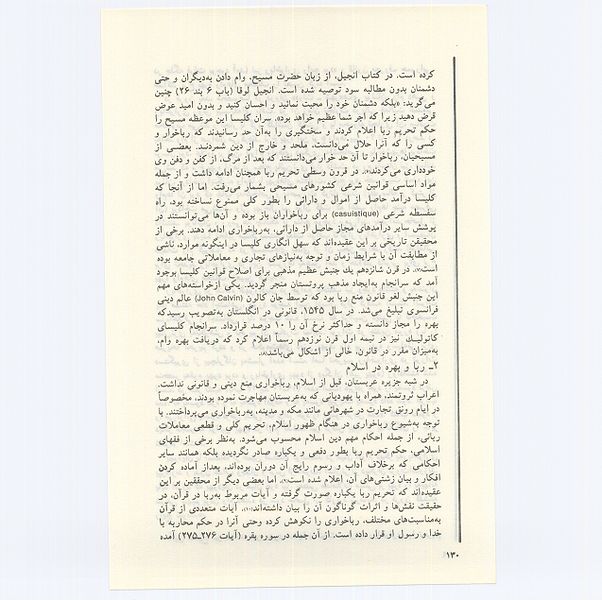 کرده است. در کتاب انجیل، از زبان حضرت مسیح، وام دادن به‌دیگران و حتی
دشمنان بدون مطالبه سود توصیه شده است. انجیل لوقا (باب ۶ بند ۲۶) چنین
می‌گرید: «بلکه دشمنان خود را محبت نمائید و احسان کنید و بدون امید عوض
قرض دهید زیرا که اجر شما عظیم خواهد بود». سران کلیسا این موعظه مسیح را
حکم تحریم ربا اعلام کردند و سختگیری را به‌آن حد رسانیدند که رباخوار و
کسی را که آنرا حلال می‌دانست، ملحد و خارج از دین شمردند. بعضی از
مسیحیان، رباخوار تا آن حد خوار می‌دانستند که بعد از مرگ، از کفن و دفن وی
خودداری می‌کردند». در قرون وسطی تحریم ربا همچنان ادامه داشت و از جمله
مواد اساسی قوانین شرعی کشورهای مسیحی بشمار می‌رفت. اما از آنجا که
کلیسا درآمد حاصل از اموال و دارائی را بطور کلی ممنوع نساخته بود، راه
سفسطه شرعی (casuistique) برای رباخواران باز بوده و آن‌ها می‌توانستند در
پوشش سایر درآمدهای مجاز حاصل از دارائی، به‌رباخواری ادامه دهند. برخی از
محققین تاریخی بر این عقیده‌اند که سهل انگاری کلیسا در اینگونه موارد، ناشی
از مطابقت آن با شرایط زمان و توجه به‌نیازهای تجاری و معاملاتی جامعه بوده
است». در قرن شانزدهم یك جنبش عظیم مذهبی برای اصلاح قوانین کلیسا بوجود
آمد که سرانجام به‌ایجاد مذهب پروتستان منجر گردید. یکی ازخواسته‌های مهم
این جنبش لغو قانون منع ربا بود که توسط جان کالون (John Calvin) عالم دینی
فرانسوی تبلیغ می‌شد. در سال ۱۵۴۵، قانونی در انگلستان به‌تصویب رسیدکه
بهره را مجاز دانسته و حداکثر نرخ آن را ۱۰ درصد قرارداد. سرانجام کلیسای
کاتولیـك نیز در نیمه اول قرن نوزدهم رسماً اعلام کرد که دریافت بهره وام،
به‌میزان مقرر در قانون، خالی از اشکال می‌باشد».
۲ــ ربا و بهره در اسلام
در شبه جزیره عربستان، قبل از اسلام، رباخواری منع دینی و قانونی نداشت.
اعراب ثروتمند، همراه با یهودیانی که به‌عربستان مهاجرت نموده بودند، مخصوصاً
در ایام رونق تجارت در شهرهائی مانند مکه و مدینه، به‌رباخواری می‌پرداختند. با
توجه به‌شیوع رباخواری در هنگام ظهور اسلام، تحریم کلی و قطعی معاملات
ربائی، از جمله احکام مهم دین اسلام محسوب می‌شود. به‌نظر برخی از فقهای
اسلامی، حکم تحریم ربا بطور دفعی و یکباره صادر نگردیده بلکه همانند سایر
احکامی که برخلاف آداب و رسوم رایج آن دوران بوده‌اند، بعداز آماده کردن
افکار و بیان زشتی‌های آن، اعلام شده است». اما بعضی دیگر از محققین بر این
عقیده‌اند که تحریم ربا یکباره صورت گرفته و آیات مربوط به‌ربا در قرآن، در
حقیقت نقش‌ها و اثرات گوناگون آن را بیان داشته‌اند. آیات متعددی از قرآن
به‌مناسبت‌های مختلف، رباخواری را نکوهش کرده وحتی آنرا در حکم محاربه با
خدا و رسول او قرار داده است. از آن جمله در سوره بقره (آیات ۲۷۶ــ۲۷۵) آمده
۱۳۰